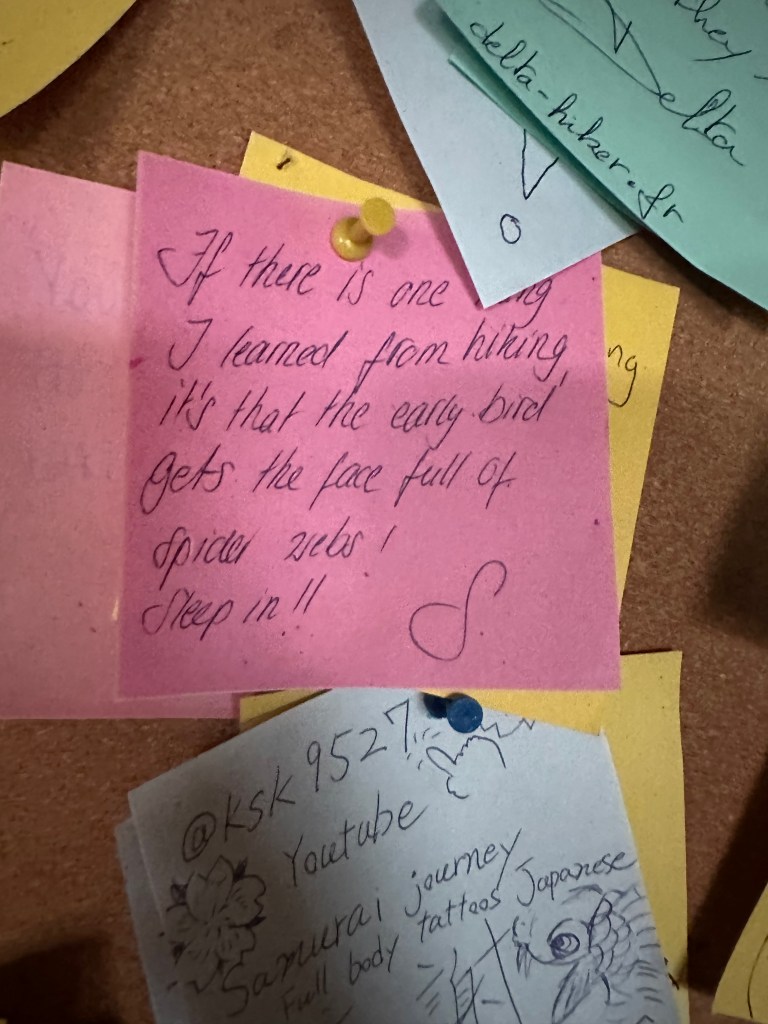 they
Delta
delta-hiker.fr
If there is one
I learned from hiking,
it's that the early bird
gets the face full of
spider webs!
Sleep in!!
S
ng
@ksk9527
Youtube
Samurai journey
Full body tattoos Japanese